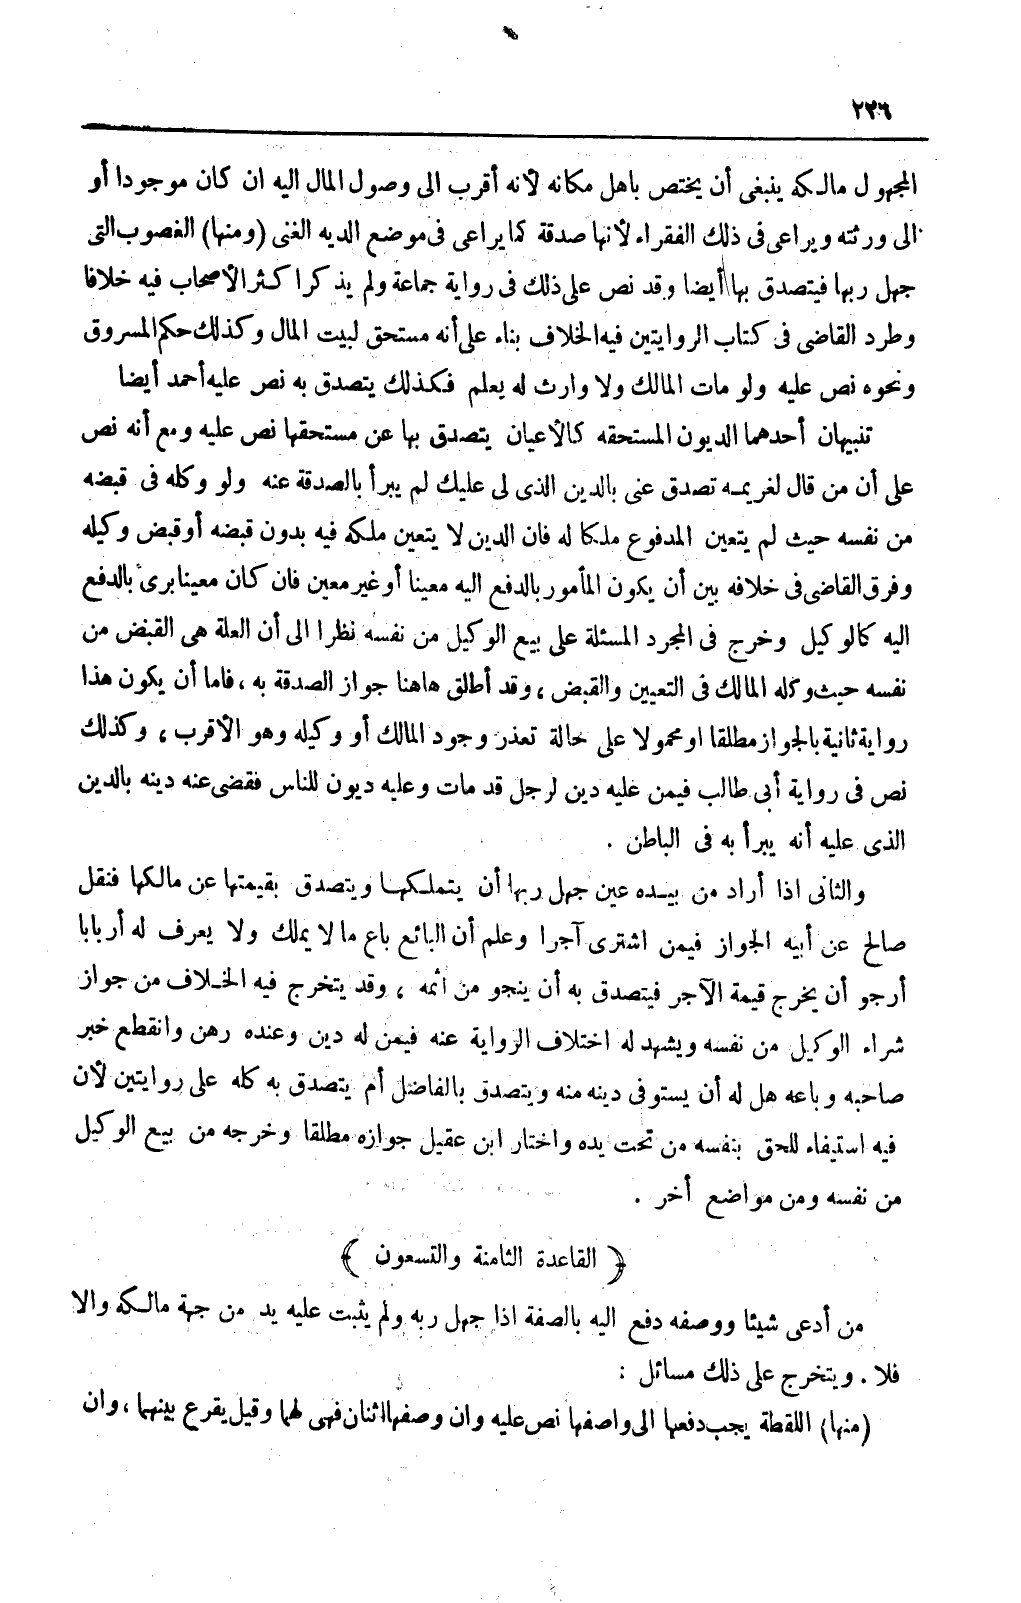 ٢٢٦
المجهول مالكه ينبغى أن يختص باهل مكانه لأنه أقرب الى وصول المال اليه ان كان موجودا أو
الى ورثته ويراعى فى ذلك الفقراء لأنها صدقة كما يراعى فى موضع الديه الغنى (ومنها) الغصوب التى
جهل ربها فيتصدق بها أيضا وقد نص على ذلك فى رواية جماعة ولم يذكر اكثر الأصحاب فيه خلافا
وطرد القاضى فى كتاب الروايتين فيه الخلاف بناء على أنه مستحق لبيت المال وكذلك حكم المسروق
ونحوه نص عليه ولو مات المالك ولا وارث له يعلم فكذلك يتصدق به نص عليه أحمد أيضا
تنبيهان أحدهما الديون المستحقه كالأعيان يتصدق بها عن مستحقها نص عليه ومع أنه نص
على أن من قال لغريمه تصدق عنى بالدين الذى لى عليك لم يبرأ بالصدقة عنه ولو وكله فى قبضه
من نفسه حيث لم يتعين المدفوع ملكا له فان الدين لا يتعين ملكه فيه بدون قبضه أو قبض وكيله
وفرق القاضى فى خلافه بين أن يكون المأمور بالدفع اليه معينا أو غير معين فان كان معينا برئ بالدفع
اليه كالوكيل وخرج فى المجرد المسئلة على بيع الوكيل من نفسه نظرا الى أن العلة هى القبض من
نفسه حيث وكله المالك فى التعيين والقبض ، وقد أطلق هاهنا جواز الصدقة به ، فاما أن يكون هذا
رواية ثانية بالجواز مطلقا او محمولا على حالة تعذر وجود المالك أو وكيله وهو الأقرب ، وكذلك
نص فى رواية أبى طالب فيمن عليه دين لرجل قد مات وعليه ديون للناس فقضى عنه دينه بالدين
الذى عليه أنه يبرأ به فى الباطن .
والثانى اذا أراد من بيده عين جهل ربها أن يتملكها ويتصدق بقيمتها عن مالكها فنقل
صالح عن أبيه الجواز فيمن اشترى آجرا وعلم أن البائع باع ما لا يملك ولا يعرف له أربابا
أرجو أن يخرج قيمة الآجر فيتصدق به أن ينجو من أثمه ، وقد يتخرج فيه الخلاف من جواز
شراء الوكيل من نفسه ويشهد له اختلاف الرواية عنه فيمن له دين وعنده رهن وانقطع خبر
صاحبه وباعه هل له أن يستوفى دينه منه ويتصدق بالفاضل أم يتصدق به كله على روايتين لأن
فيه استيفاء للحق بنفسه من تحت يده واختار ابن عقيل جوازه مطلقا وخرجه من بيع الوكيل
من نفسه ومن مواضع أخر .
﴿ القاعدة الثامنة والتسعون ﴾
من أدعى شيئا ووصفه دفع اليه بالصفة اذا جهل ربه ولم يثبت عليه يد من جهة مالكه والا
فلا . ويتخرج على ذلك مسائل :
(منها) اللقطة يجب دفعها الى واصفها نص عليه وان وصفها اثنان فهى لهما وقيل يقرع بينهما ، وان